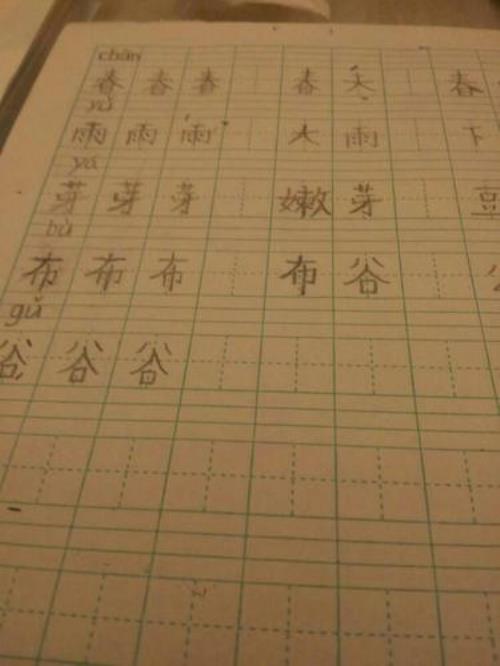 chūn
春 春 春 春 天 春
yǔ
雨 雨 雨 大 雨 下
yá
芽 芽 芽 嫩 芽 豆
bù
布 布 布 布 谷
gǔ
谷 谷 谷